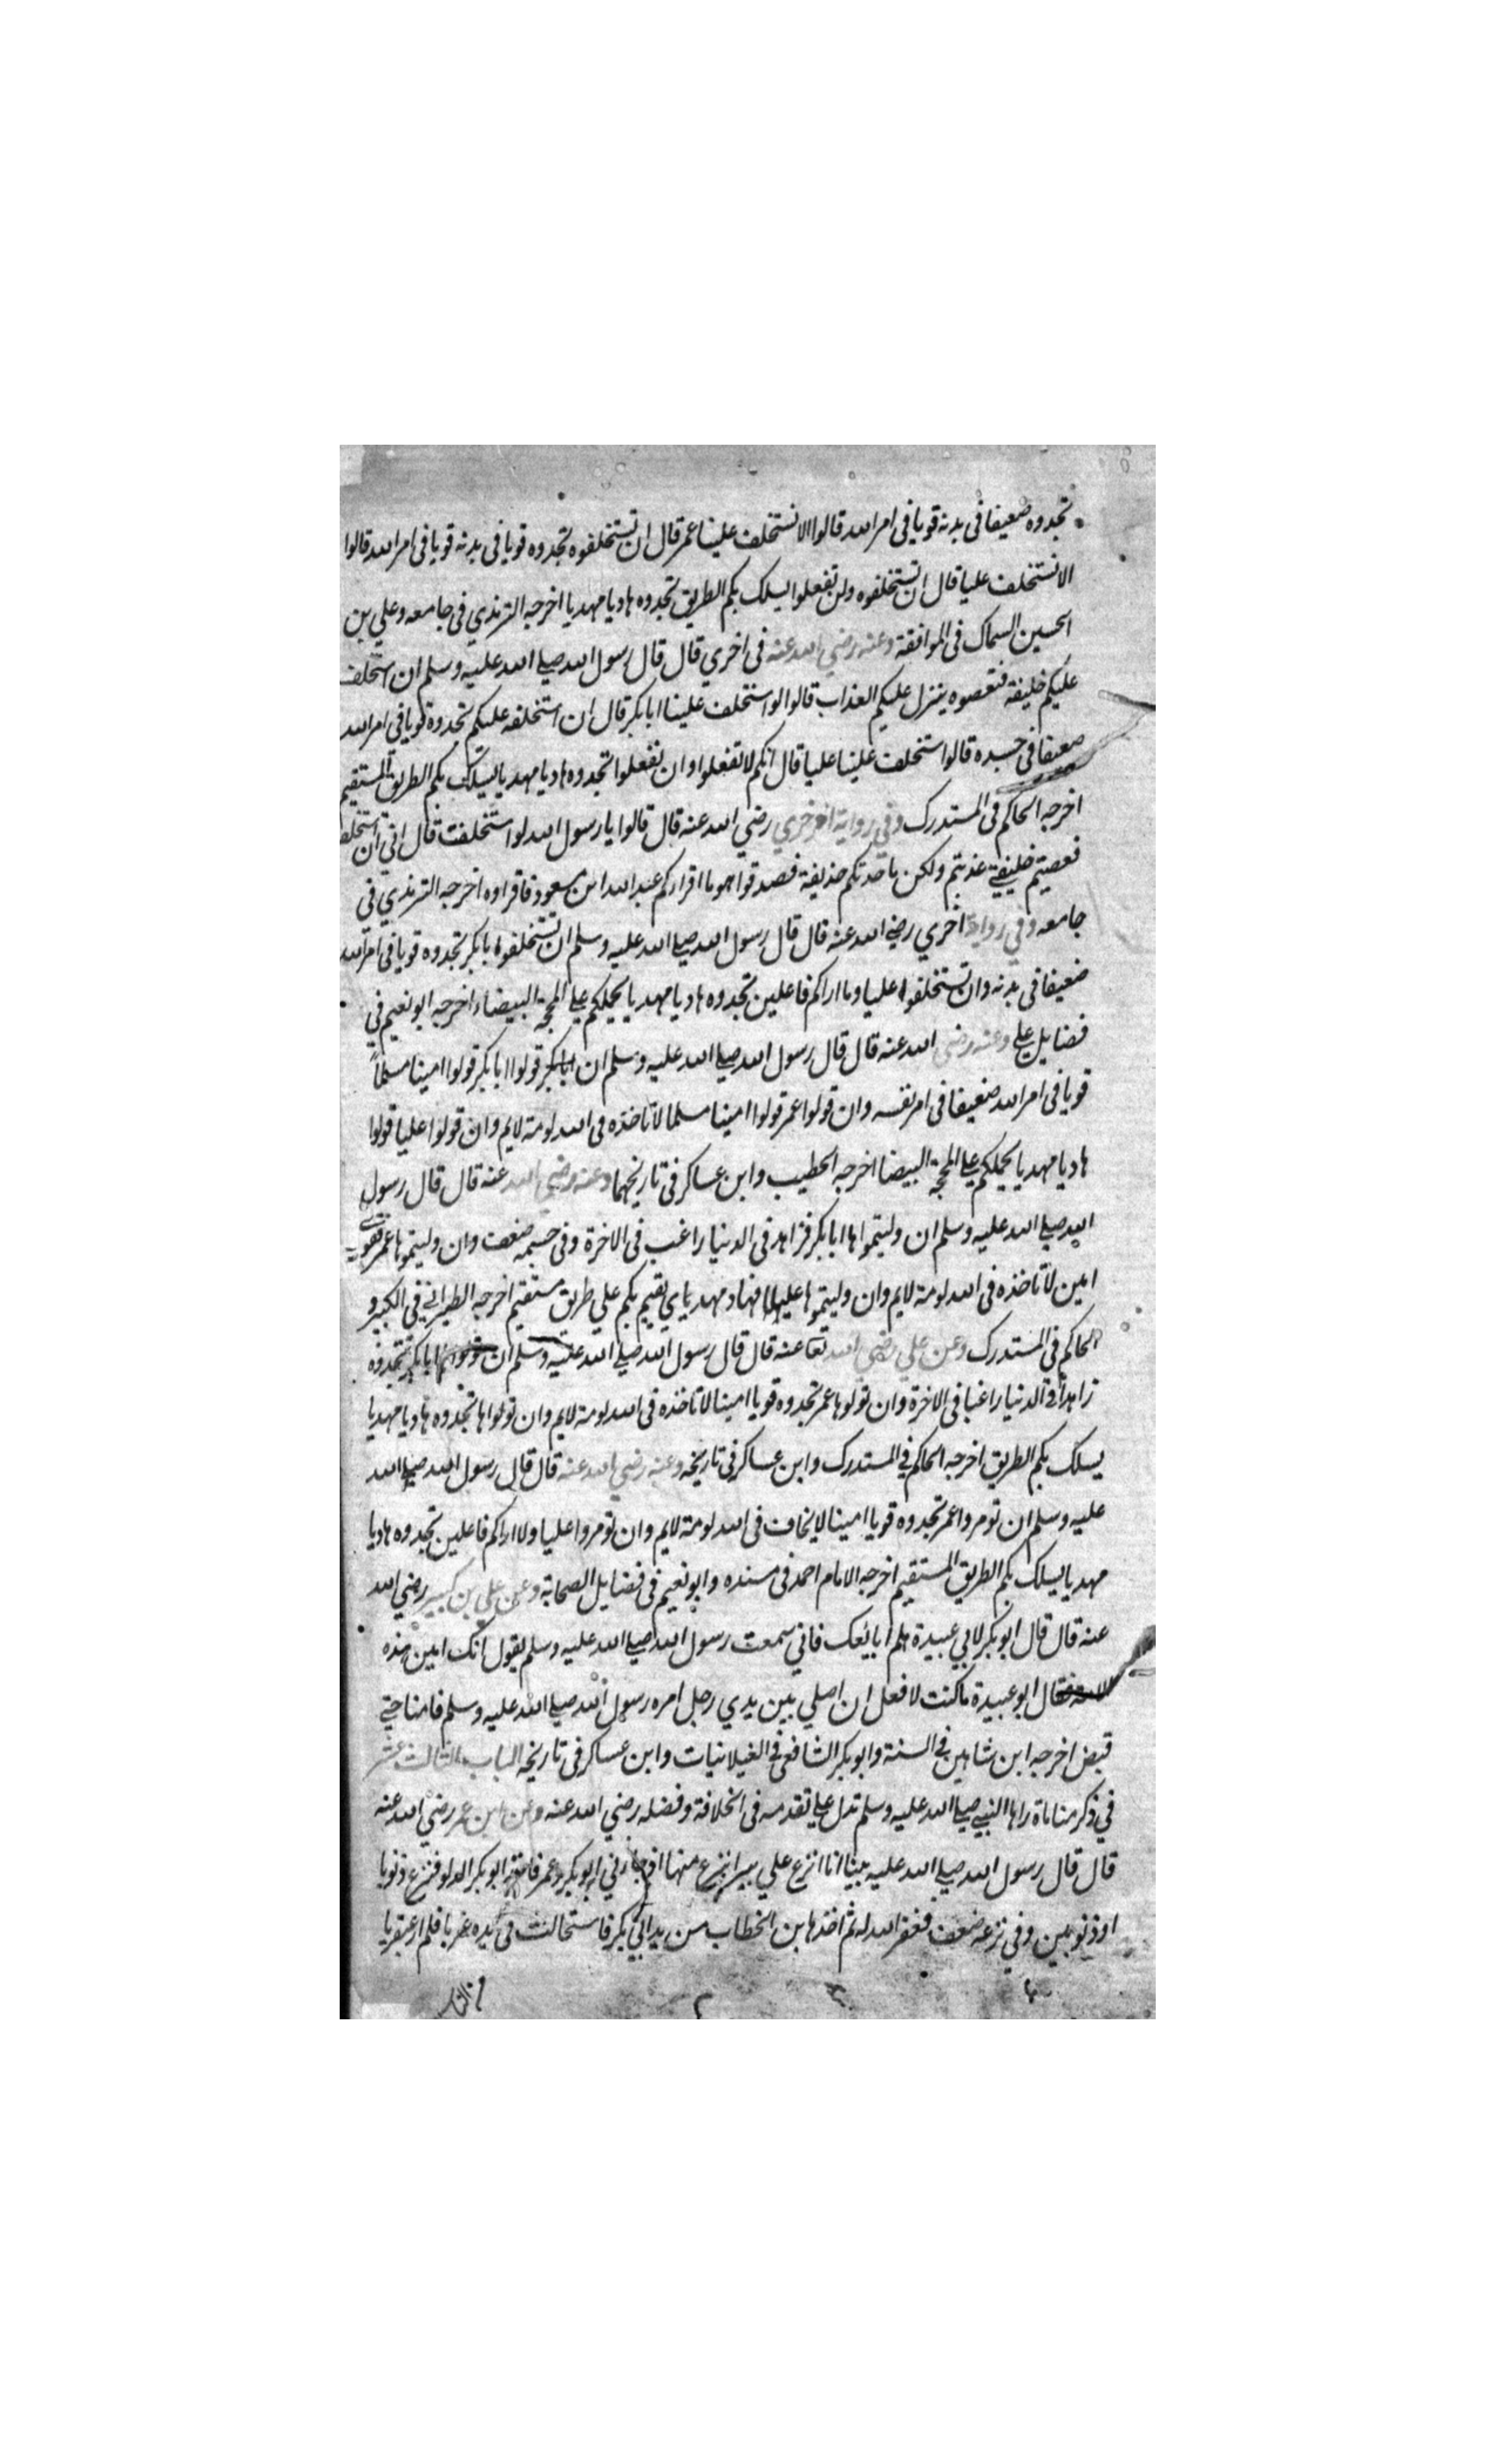 تجدوه ضعيفا فى بدنه قويا فى امر الله قالوا الا نستخلف علينا عمر قال ان تستخلفوه تجدوه قويا فى بدنه قويا فى امر الله قالوا
الا نستخلف عليا قال ان تستخلفوه ولن تفعلوا يسلك بكم الطريق تجدوه هاديا مهديا اخرجه الترمذي فى جامعه وعلي بن
الحسين السماك فى الموافقة وعنه رضي الله عنه فى اخري قال قال رسول الله صلى الله عليه وسلم ان استخلف
عليكم خليفة فتعصوه ينزل عليكم العذاب قالوا لو استخلف علينا ابا بكر قال ان استخلفه عليكم تجدوه قويا فى امر الله
ضعيفا فى جسده قالوا استخلف علينا عليا قال انكم لا تفعلوا وان تفعلوا تجدوه هاديا مهديا يسلك بكم الطريق المستقيم
اخرجه الحاكم فى المستدرك وفي رواية اخري رضي الله عنه قال قالوا يا رسول الله لو استخلفت قال اني ان استخلف
فعصيتم خليفتي عذبتم ولكن ما حدثكم حذيفة فصدقوا هوما اقراركم عبد الله ابن مسعود فاقراوه اخرجه الترمذي في
جامعه وفي رواية اخري رضي الله عنه قال قال رسول الله صلى الله عليه وسلم ان تستخلفوا ابا بكر تجدوه قويا فى امر الله
ضعيفا فى بدنه وان تستخلفوا عليا وما اراكم فاعلين تجدوه هاديا مهديا يحملكم على المحجة البيضاء اخرجه ابو نعيم في
فضايل علي وعنه رضي الله عنه قال قال رسول الله صلى الله عليه وسلم ان قولوا ابا بكر قولوا امينا مسلما
قويا فى امر الله ضعيفا فى امر نفسه وان قولوا عمر قولوا امينا مسلما لا تاخذه فى الله لومة لايم وان قولوا عليا قولوا
هاديا مهديا يحملكم على المحجة البيضا اخرجه الخطيب وابن عساكر فى تاريخهما وعنه رضي الله عنه قال قال رسول
الله صلى الله عليه وسلم ان وليتموا ها ابا بكر فزاهد فى الدنيا راغب فى الاخرة وفى جسمه ضعف وان وليتموها عمر فقوي
امين لا تاخذه فى الله لومة لايم وان وليتموها عليا فهاد مهديا يقيم بكم على طريق مستقيم اخرجه الطبراني في الكبير و
الحاكم فى المستدرك وعن علي رضي الله تعا عنه قال قال رسول الله صلى الله عليه وسلم ان ابا بكر تجدوه
زاهدا فى الدنيا راغبا فى الاخرة وان تولوها عمر تجدوه قويا امينا لا تاخذه فى الله لومة لايم وان تولوا ها تجدوه هاديا مهديا
يسلك بكم الطريق اخرجه الحاكم في المستدرك وابن عساكر فى تاريخه وعنه رضي الله عنه قال قال رسول الله صلى الله
عليه وسلم ان تومروا عمر تجدوه قويا امينا لا يخاف فى الله لومة لايم وان تومروا عليا ولا اراكم فاعلين تجدوه هاديا
مهديا يسلك بكم الطريق المستقيم اخرجه الامام احمد فى مسنده وابو نعيم فى فضايل الصحابة وعن علي بن كبير رضي الله
عنه قال قال ابو بكر لابي عبيدة هلم ابايعك فاني سمعت رسول الله صلى الله عليه وسلم يقول انك امين هذه
الامة فقال ابو عبيدة ما كنت لافعل ان اصلي بين يدي رجل امره رسول الله صلى الله عليه وسلم فامنا حتي
قبض اخرجه ابن شاهين في السنة وابو بكر الشافعي في الغيلانيات وابن عساكر فى تاريخه الباب الثالث عشر
في ذكر مناماة راها النبي صلى الله عليه وسلم تدل على تقدمه فى الخلافة وفضله رضي الله عنه وعن ابن عمر رضي الله عنه
قال قال رسول الله صلى الله عليه بينا انا انزع علي بير انزع منها اذ جارني ابو بكر وعمر فاخذ ابو بكر الدلو فنزع ذنوبا
او ذنوبين وفي نزعه ضعف فغفر الله له ثم اخذها بن الخطاب من يد ابي بكر فاستحالت فى يده غربا فلم ار عبقريا
من الناس